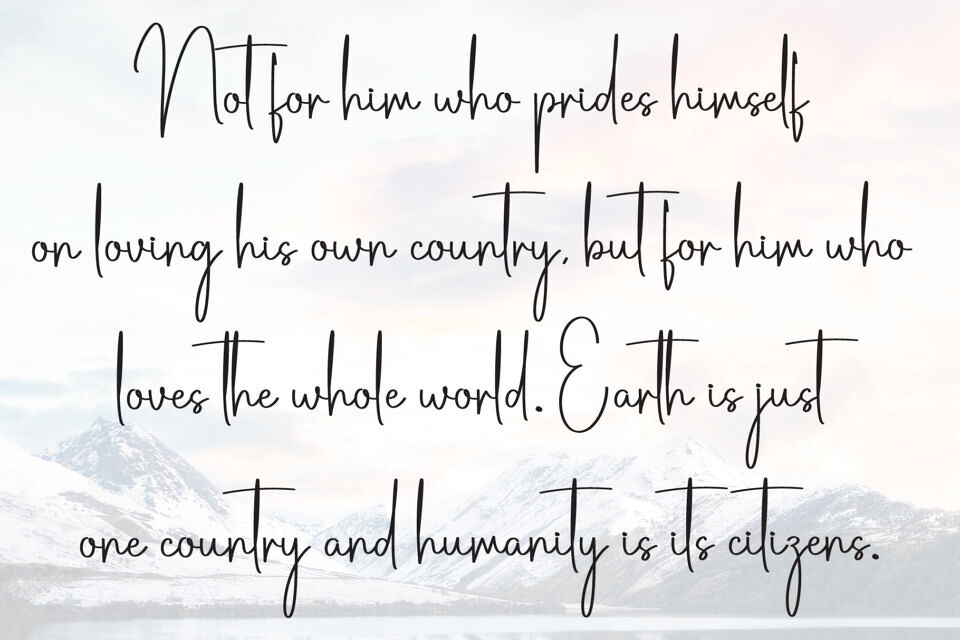 Not for him who prides himself
on loving his own country, but for him who
loves the whole world. Earth is just
one country and humanity is its citizens.